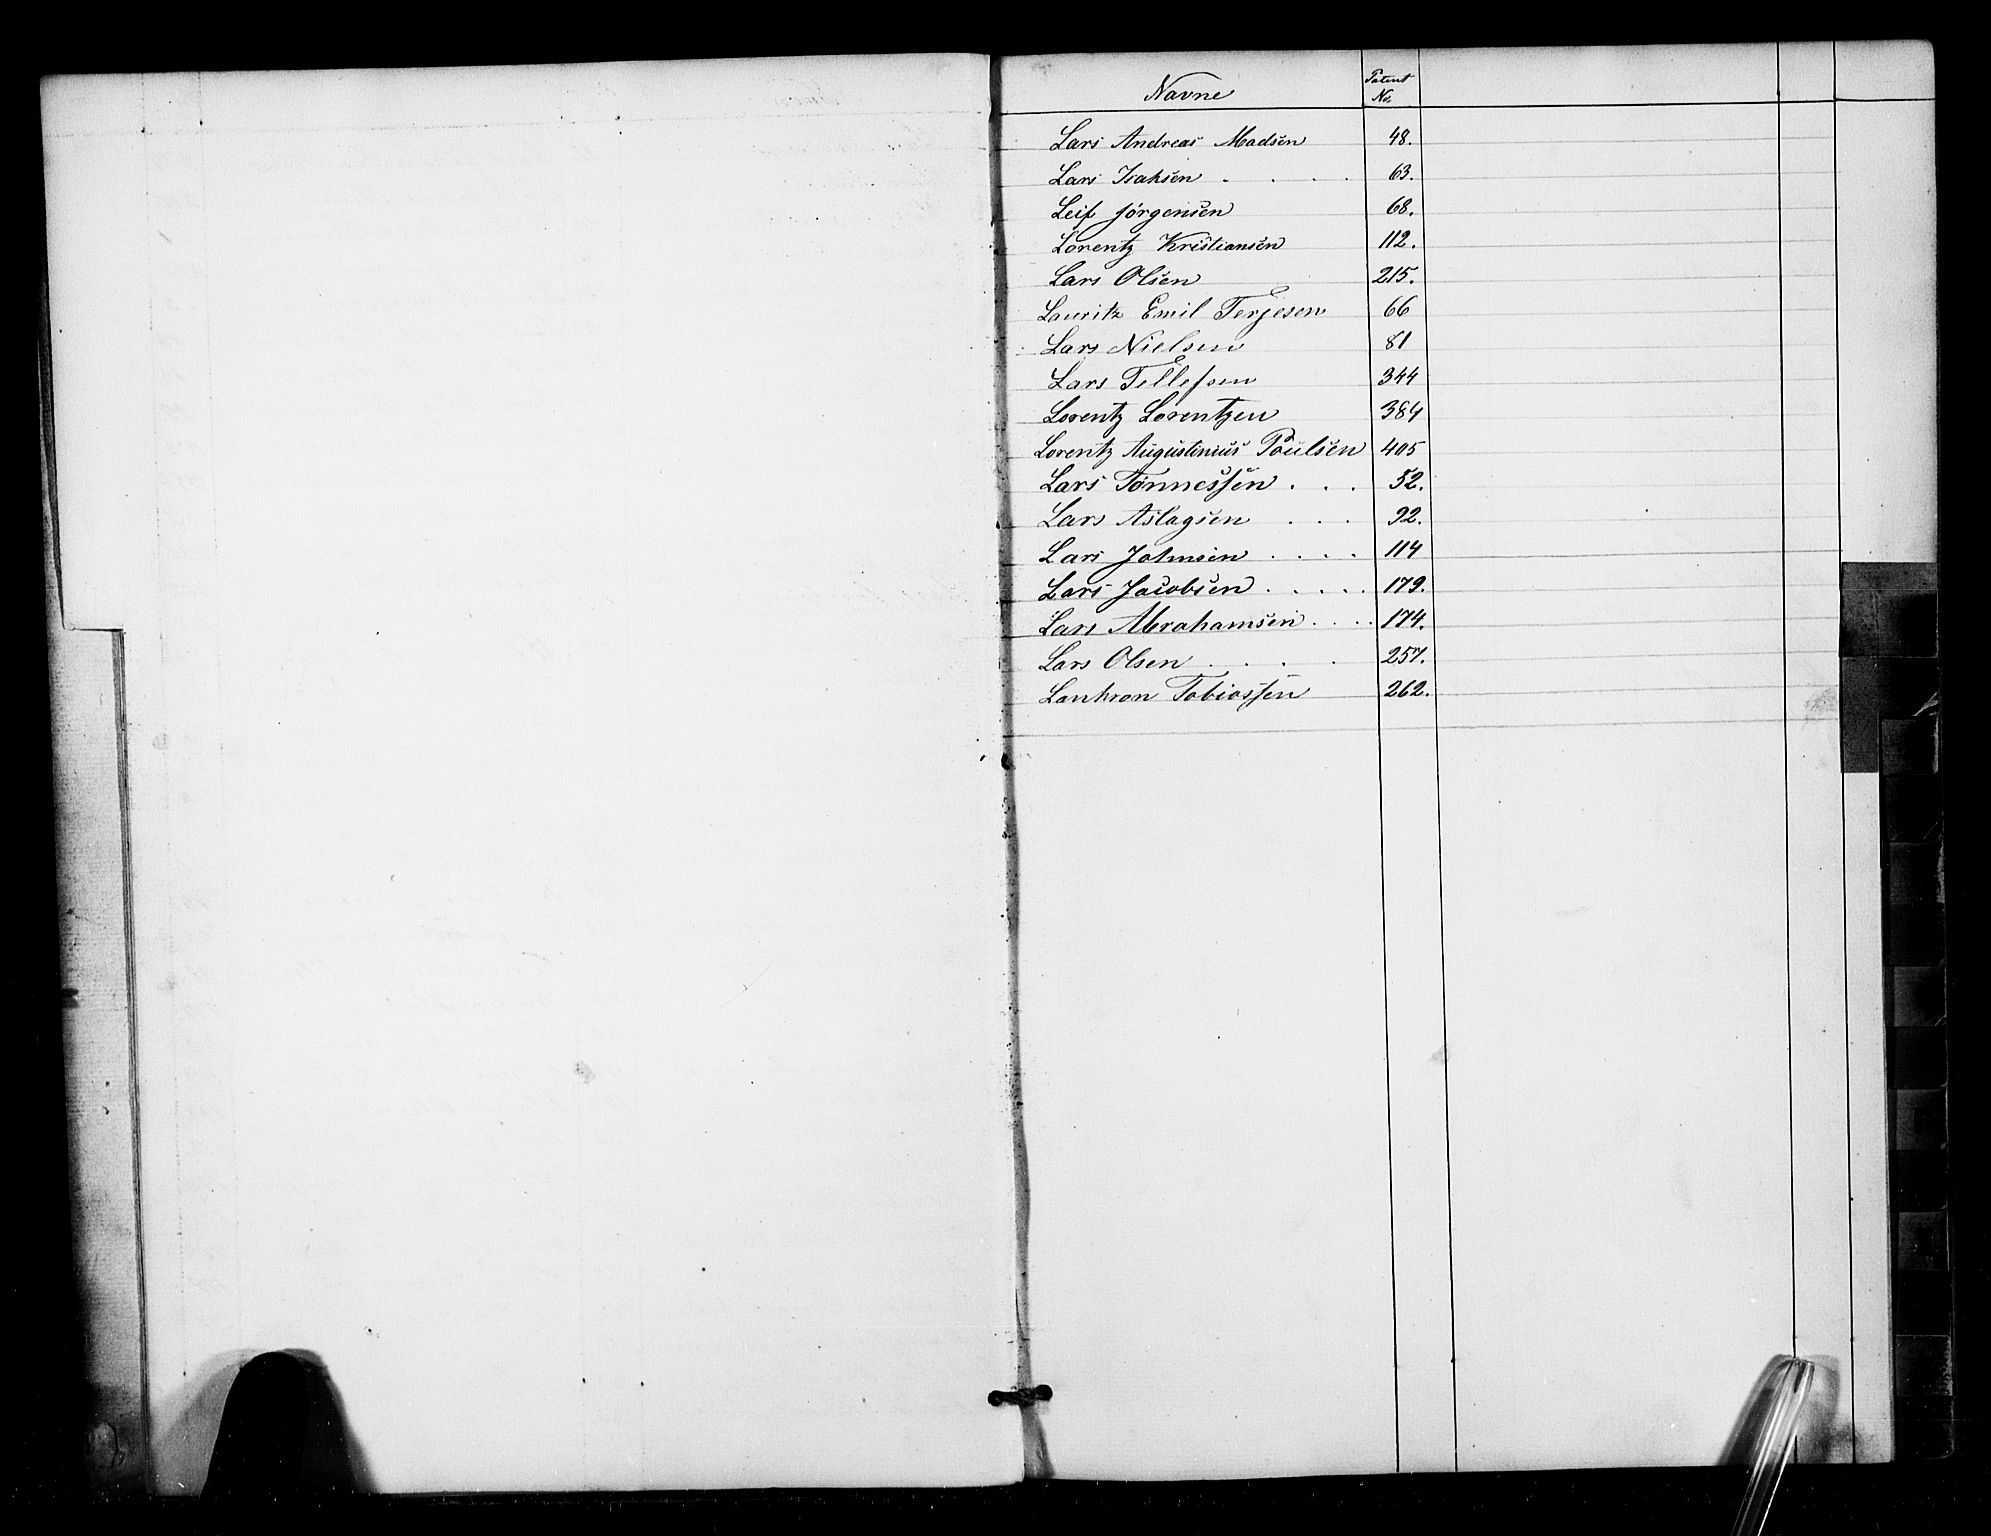 Navne Patent No.
Lars Andreas Madsen 48.
Lars Isaksen . . . . 63.
Leif Jörgensen 68.
Lorentz Kristiansen 112.
Lars Olsen 215.
Lauritz Emil Terjesen 66
Lars Nielsen 81
Lars Tellefsen 344
Lorentz Lorentzen 384
Lorentz Augustinius Poulsen 405
Lars Tönnessen . . . 52.
Lars Aslagsen . . . 92.
Lars Johnsen . . . . 114
Lars Jacobsen . . . . . 179.
Lars Abrahamsen . . . . 174.
Lars Olsen . . . . 257.
Tobiassen 262.